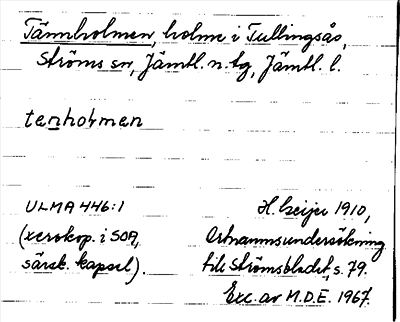 Tännholmen, holme i Tullingsås,
Ströms sn, Jämtl. n. tg, Jämtl. l.
tenholmen
ULMA 446:1
H. Geijer 1910,
(xerokop. i SOA,
Ortnamnsundersökning
särsk. kapsel).
till Strömsbladet, s. 79.
Exc. av M.D.E. 1967.